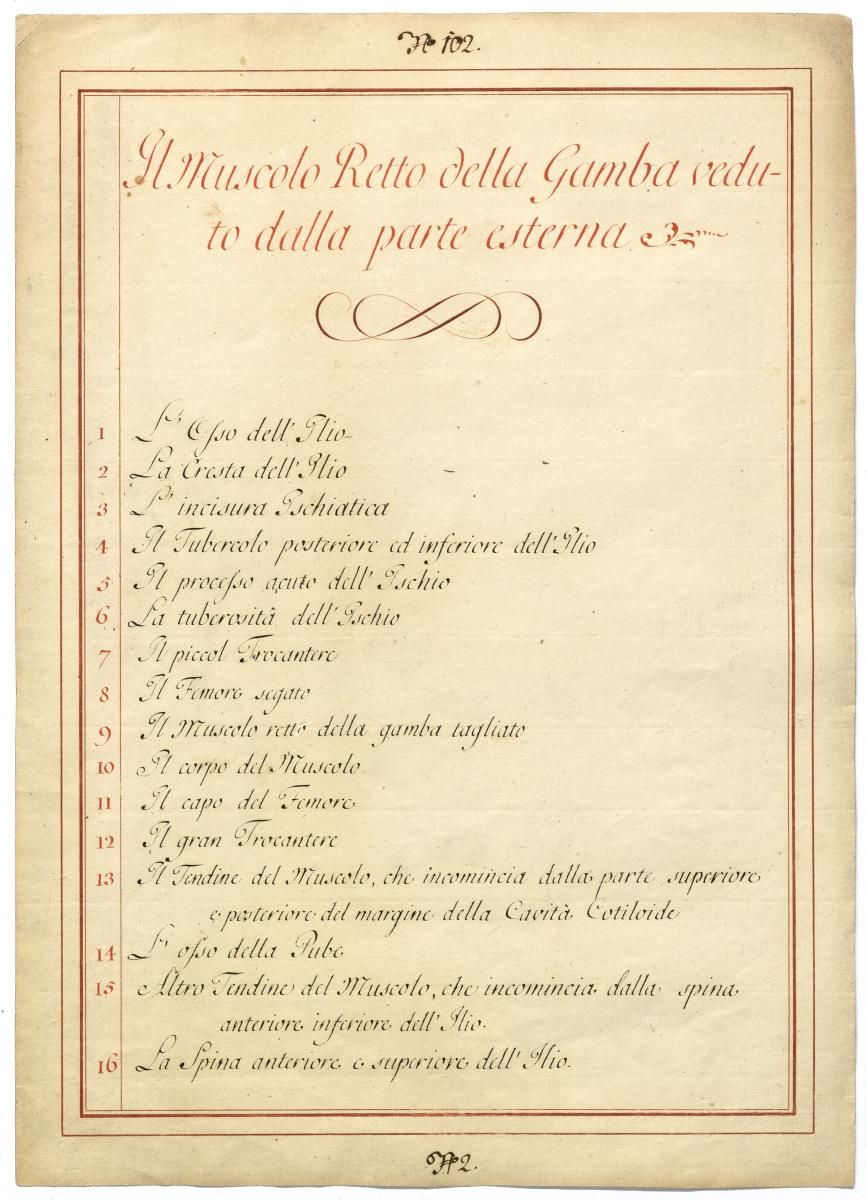 No 102.
Il Muscolo Retto della Gamba vedu-
to dalla parte esterna
1 L' Osso dell' Ilio
2 La Cresta dell' Ilio
3 L' incisura Ischiatica
4 Il Tubercolo posteriore ed inferiore dell' Ilio
5 Il processo acuto dell' Ischio
6 La tuberosità dell' Ischio
7 Il piccol Trocantere
8 Il Femore segato
9 Il Muscolo retto della gamba tagliato
10 Il corpo del Muscolo
11 Il capo del Femore
12 Il gran Trocantere
13 Il Tendine del Muscolo, che incomincia dalla parte superiore
e posteriore del margine della Cavità Cotiloide
14 L' osso della Pube
15 Altro Tendine del Muscolo, che incomincia dalla spina
anteriore inferiore dell' Ilio.
16 La Spina anteriore e superiore dell' Ilio.
2.